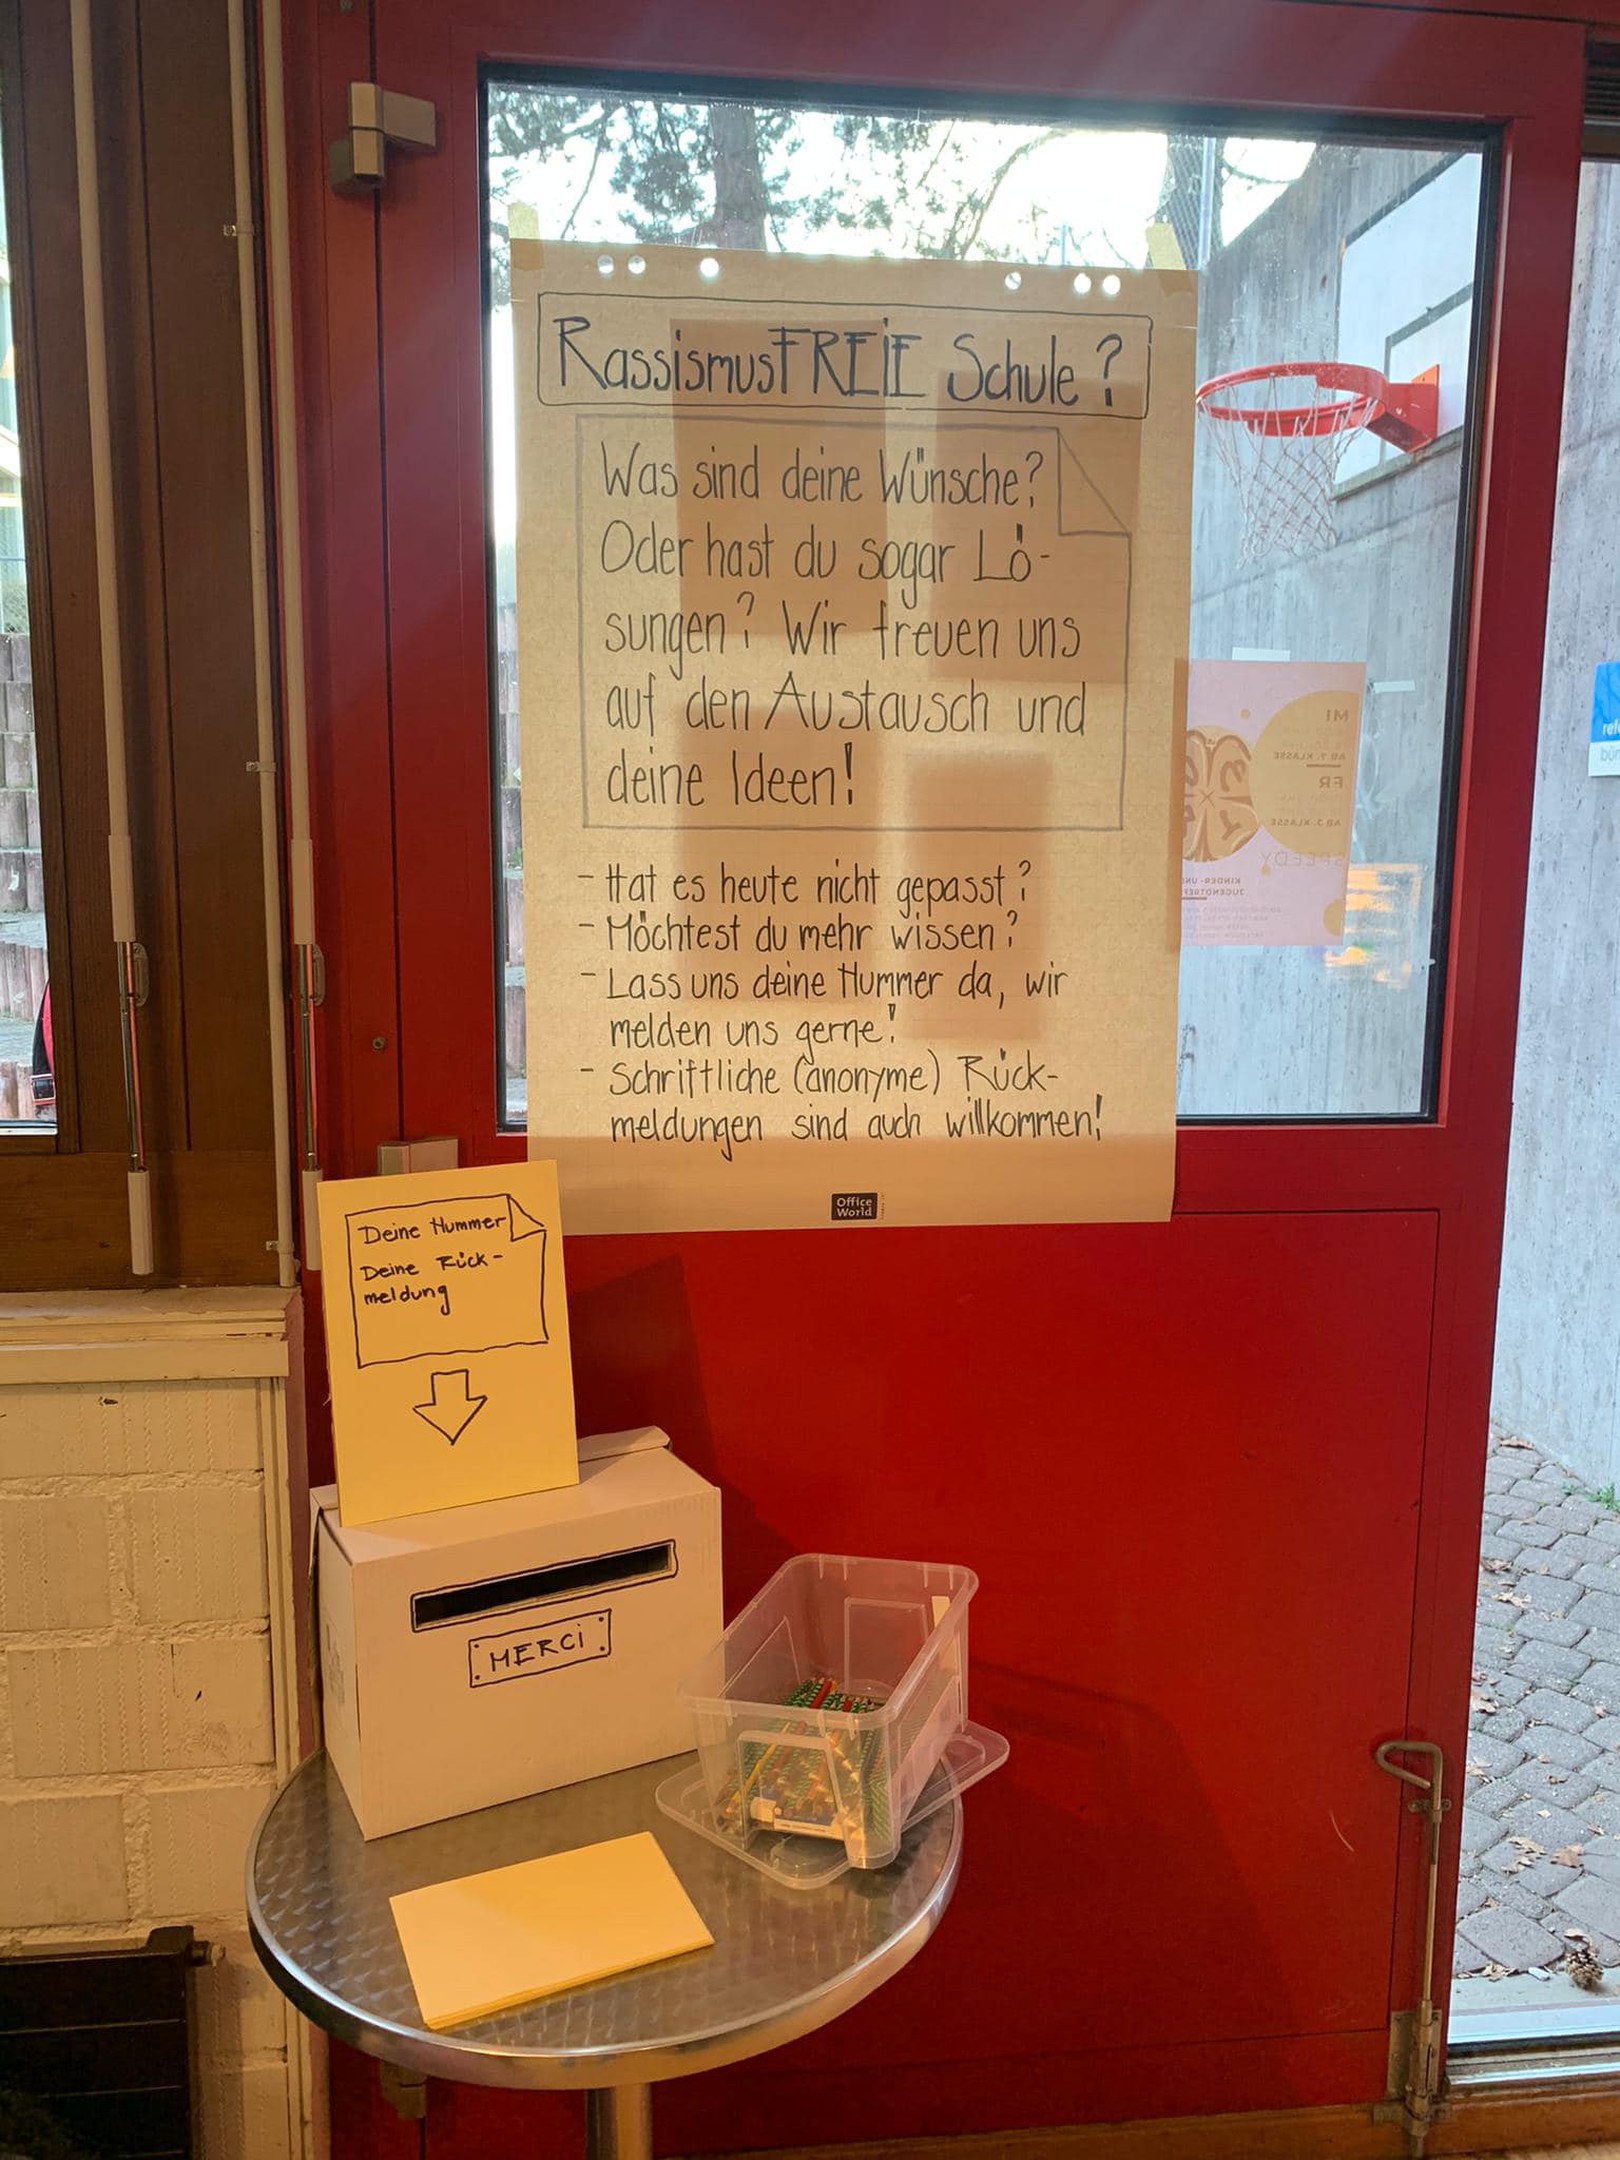 RassismusFREIE Schule?
Was sind deine Wünsche?
Oder hast du sogar Lö-
sungen? Wir freuen uns
auf den Austausch und
deine Ideen!
- Hat es heute nicht gepasst?
- Möchtest du mehr wissen?
- Lass uns deine Nummer da, wir
melden uns gerne!
- Schriftliche (anonyme) Rück-
meldungen sind auch willkommen!
Office
World
MI
AB 7. KLASSE
FR
AB 3. KLASSE
SPEEDY
KINDER- UND
JUGENDTREFF
Deine Nummer
Deine Rück-
meldung
MERCI